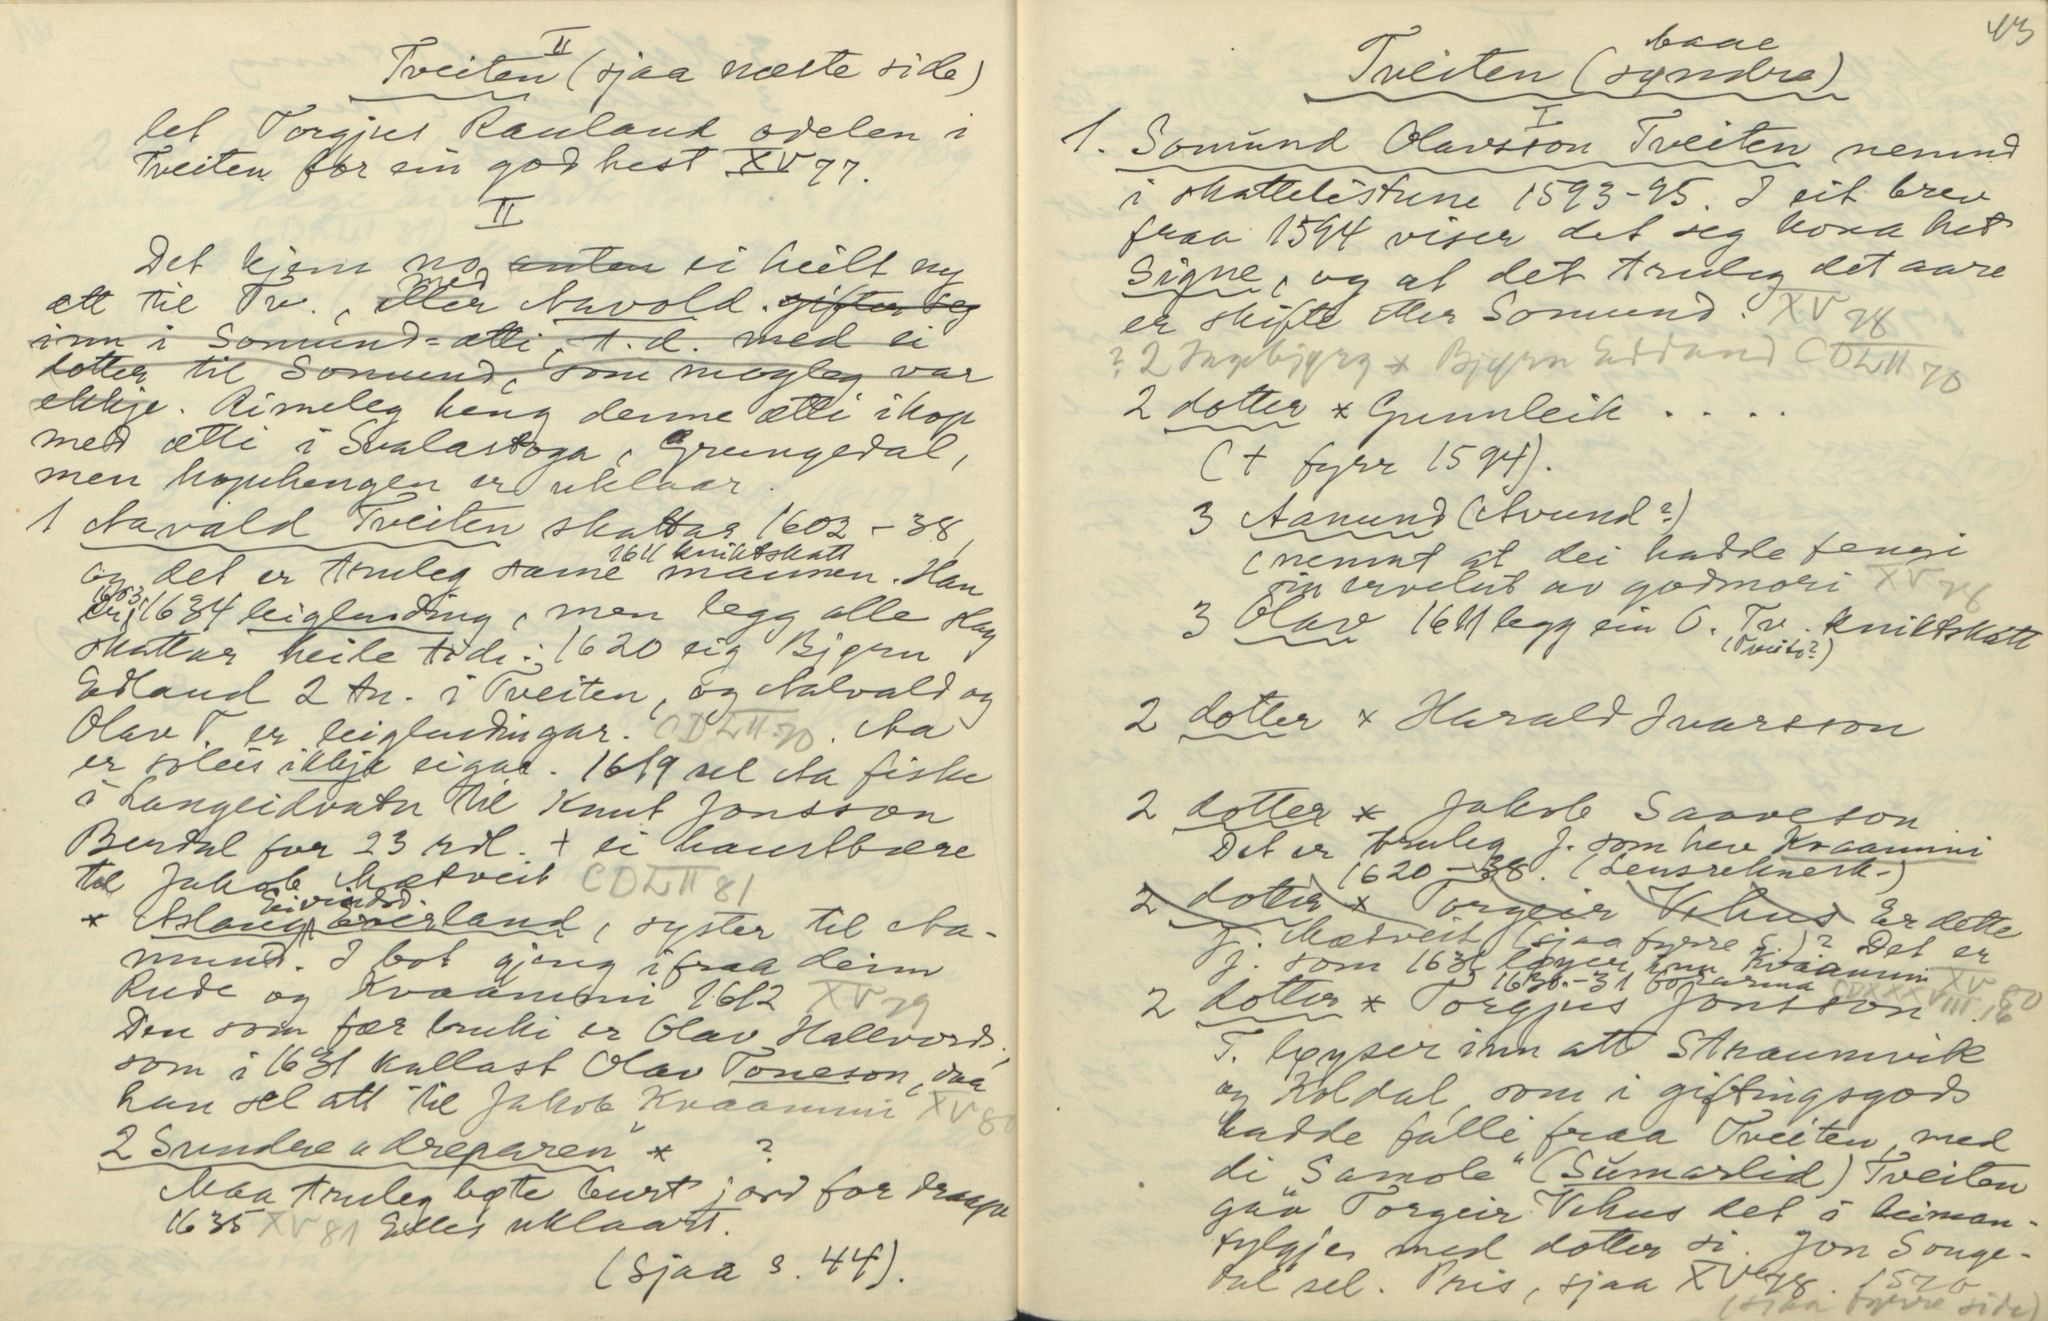 II
Tveiten (sjaa næste side)
let Torgjus Rauland odelen i
Tveiten for ein god hest XV 77.
II
Det kjem no anten ei heilt ny
ætt til Tv., eller med Aavold. gifter seg
inn i Somund-ætti, t. d. med ei
dotter til Somund, som mogleg var
ekkje. Rimeleg heng denne ætti ihop
med ætti i Svalastoga, Grungedal,
men hophengen er uklaar.
1 Aavald Tveiten skattar 1602-38,
1611 kniktskatt
og det er truleg same mannen. Han
er i 1634 leiglending, men legg alle
skattar heile tidi; 1620 eig Bjørn
Edland 2 tn. i Tveiten, og Aavald og
Olav T. er leiglendingar. CDLII 70. Aa
er soleis ikkje eigar. 1619 sel Aa fiske
i Langeidvatn til Knut Jonsson
Berdal for 23 rdl. + ei haustbære
til Jakob Mætveit CDLII 81
Eivindsd
* Aslaug Øverland, syster til Aa-
mund. I bot gjeng ifraa deim
Rude og Kvaammi 1612 XV 79
Den som fær bruki er Olav Hallvords.,
som i 1631 kallast Olav Toneson, daa
han sel att til Jakob Kvaammi XV 80
2 Sundre "dreparen" * ?
Maa truleg bøte burt jord for draape
1635 XV 81 Elles uklaart.
(Sjaa s. 44).
43
baae
Tveiten (syndre)
I
1. Somund Olavsson Tveiten nemnd
i skattelistune 1593-95. I eit brev
fraa 1594 viser det seg kona het
Signe, og at det truleg det aare
er skifte etter Somund. XV 78
? 2 Ingebjørg * Bjørn Edland CDLII 70
2 dotter * Gunnleik . . . .
(+ fyrr 1594).
3 Aanund (Avund?)
(nemnt at dei hadde fengi
sin ervelut av godmori XV 78
3 Olav 1611 legg ein O. Tv. kniktskatt
(Tveit?)
2 dotter * Harald Ivarsson
2 dotter * Jakob Saaveson
Det er truleg J. som hev Kvaammi
1620-38. (Lensreknesk.)
2 dotter * Torgeir Vehus Er dette
J. Mætveit (sjaa fyrre s.)? Det er
J. som 1631 løyser inn Kvaammi XV 80
1630-31 CDXXXVIII 16
2 dotter * Torgjus Jonsson
T. løyser inn att Straumvik
og Koldal, som i giftingsgods
hadde falli fraa Tveiten, med
di "Samole" (Sumarlid) Tveiten
gav Torgeir Vehus det i heiman-
fylgje med dotter si. Jon Songe-
dal sel. Pris, sjaa XV 78. 1570
(sjaa fyrre side)